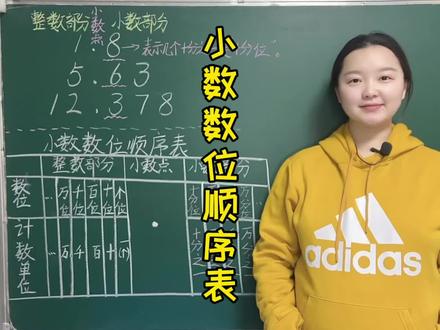 整数部分 小数点 小数部分
1.8→表示几个十分之一 十分位
5.63
12.378
小数数位顺序表
小数数位顺序表
整数部分 小数点 小 分
数位 … 万位 千位 百位 十位 个位 十分位
计数单位 … 万 千 百 十 个
adidas